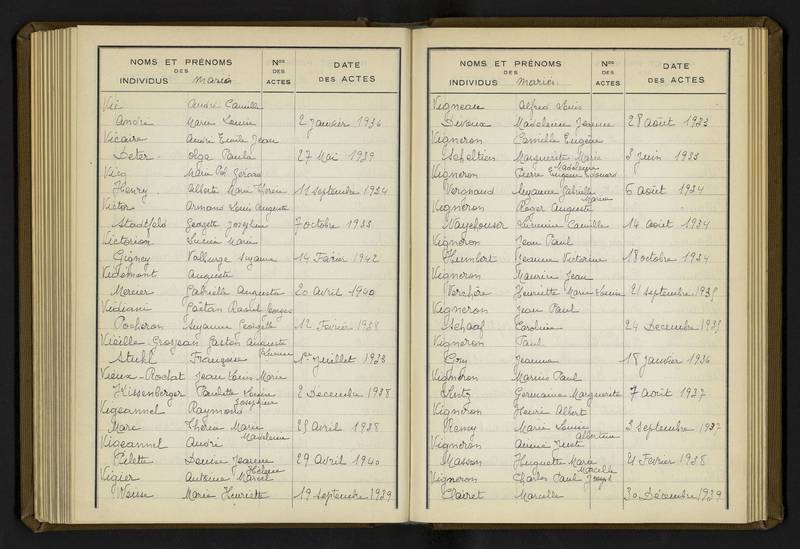 NOMS ET PRÉNOMS
DES
INDIVIDUS Mariés
Nos
DES
ACTES
DATE
DES ACTES
Vié André Camille
André Marie Louise 2 Janvier 1936
Vicaire André Emile Jean
Deter Olga Paula 27 Mai 1939
Marie Gérard
Henry Alberte Marie Thérèse 11 septembre 1934
Victor Armand Louis Auguste
Stadtfeld Georgette Joséphine 7 octobre 1933
Victorion Lucien Marie
Gigney Suzanne 14 Février 1942
Vidémont Auguste
Mercier Gabrielle Augusta 20 Avril 1940
Vidiani Gaëtan Raoul Georges
Pocheron Suzanne Georgette 12 Février 1938
Vieille-Grosjean Gaston Auguste
Stiehl Françoise 1er Juillet 1933
Vieux-Rochat Jean Louis Marie
Kissenberger Paulette Louise 2 Décembre 1938
Joséphine
Vigeannel Raymond
Marc Thérèse Marie 23 Avril 1938
Madeleine
Vigeannel André
Pilette Denise Jeanne 29 Avril 1940
Hélène
Vigier Antoine Marcel
Weisse Marie Henriette 19 septembre 1939
NOMS ET PRÉNOMS
DES
INDIVIDUS Mariés
Nos
DES
ACTES
DATE
DES ACTES
Vigneau Alfred Louis
Devoux Madeleine Jeanne 28 août 1933
Vigneron Camille Eugène
Scheltien Marguerite Marie 3 Juin 1933
Madeleine
Vigneron Pierre Eugène Edouard
Vergnaud Suzanne Gabrielle 6 août 1934
Maria
Vigneron Roger Auguste
Lucienne Camille 14 août 1934
Vigneron Jean Paul
Humbert Jeanne Victorine 18 octobre 1934
Vigneron Maurice Jean
Verchère Henriette Marie Louise 21 septembre 1935
Vigneron Jean Paul
Schaaf Caroline 24 Décembre 1935
Vigneron Paul
Cry Jeanne 18 Janvier 1936
Vigneron Marius Paul
Germaine Marguerite 7 août 1937
Vigneron Henri Albert
Remy Marie Louise 2 septembre 1937
Albertine
Vigneron Aimé Juste
Masson Huguette Marie 21 Février 1938
Marcelle
Vigneron Charles Paul Joseph
Clairet Marcelle 30 Décembre 1939